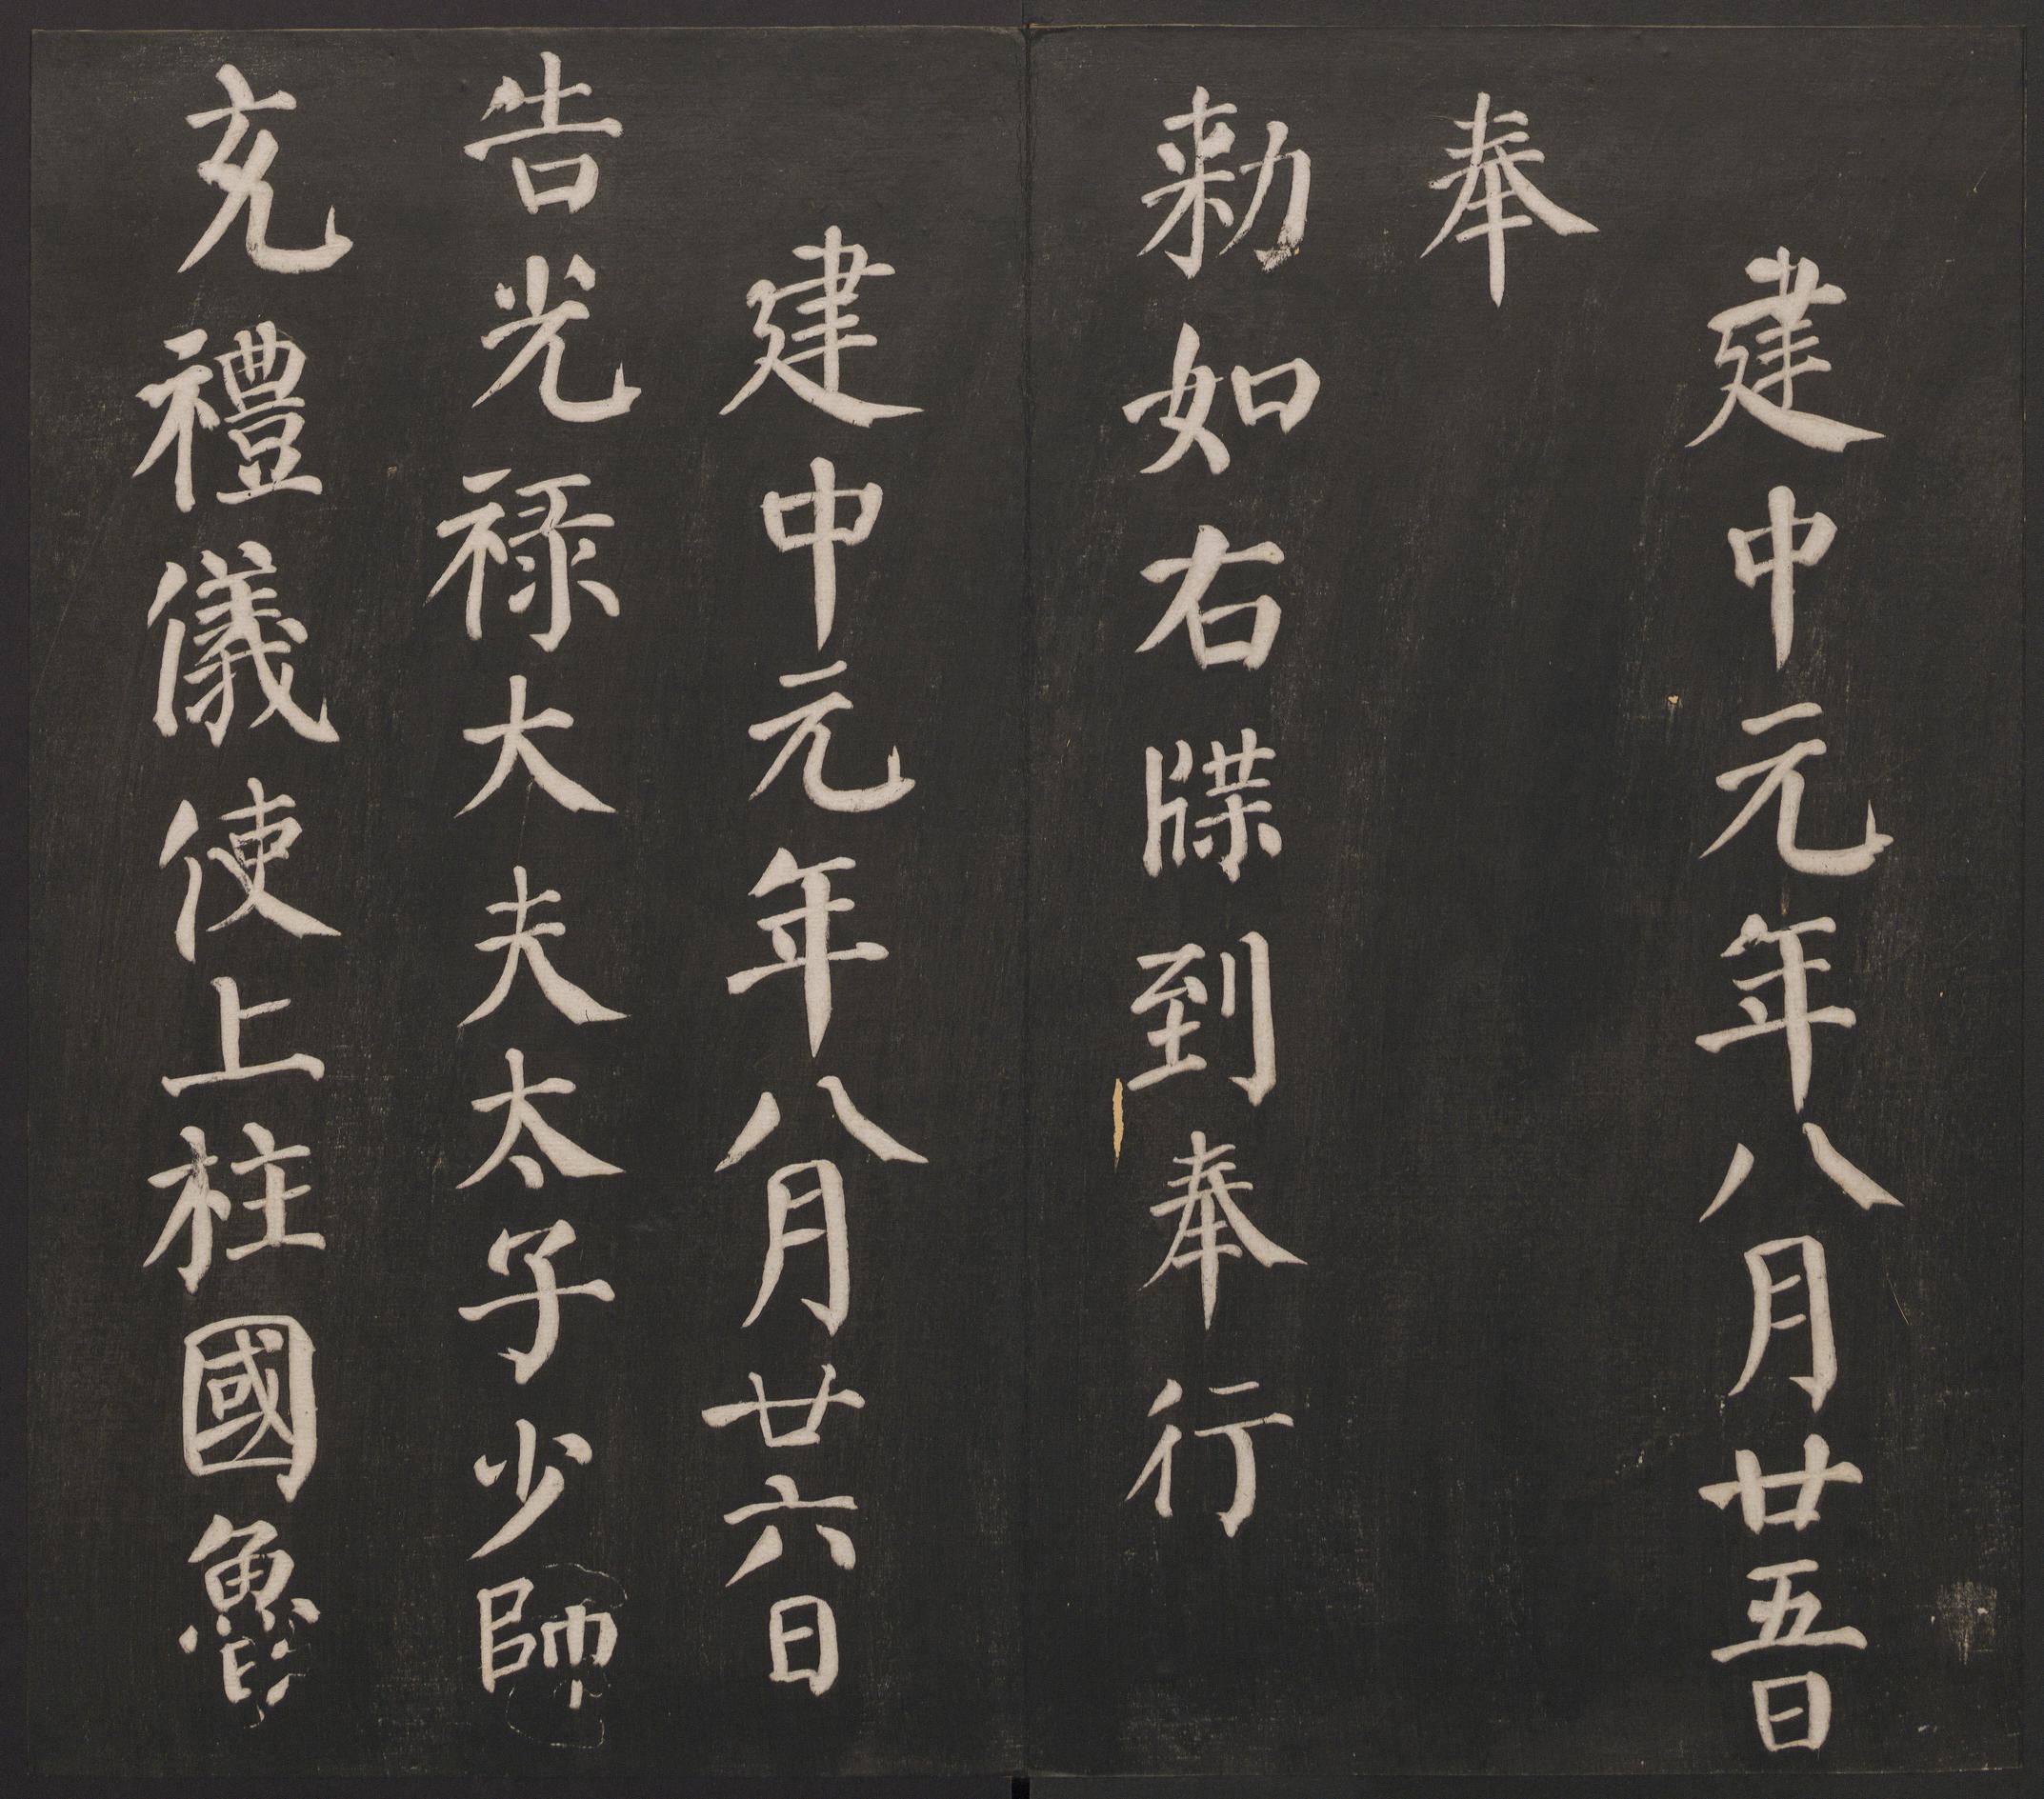 建中元年八月廿五日
奉
勑如右牒到奉行
建中元年八月廿六日
告光禄大夫太子少師
充禮儀使上柱國魯